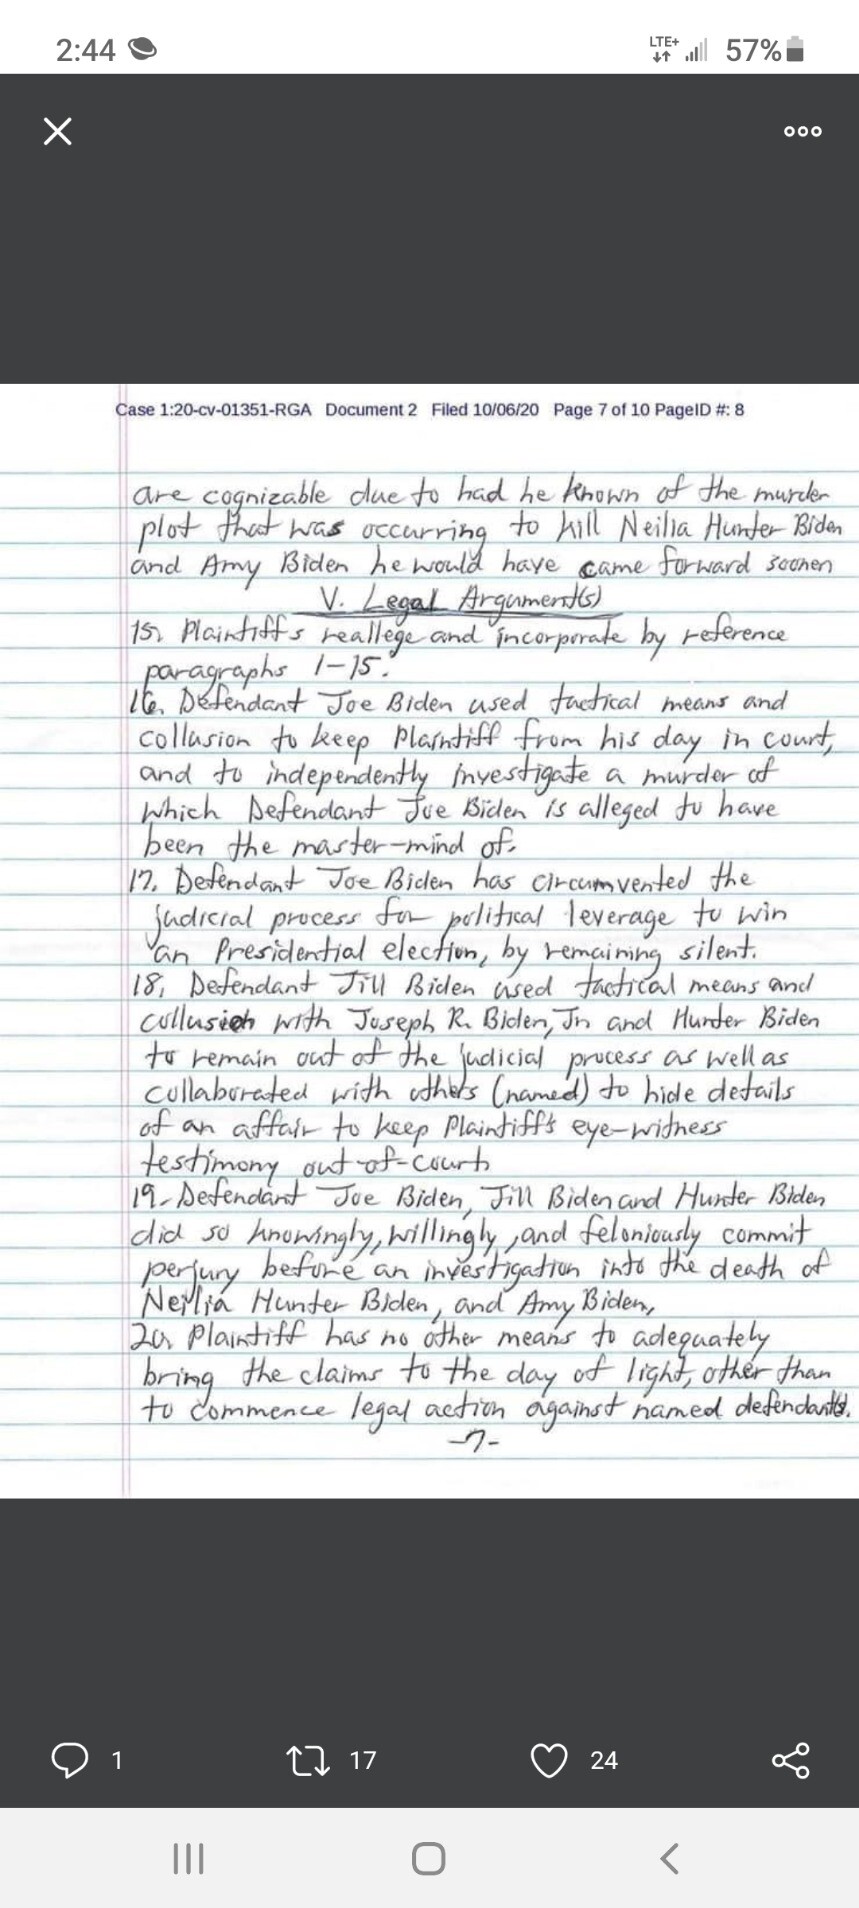 2:44
LTE+
57%
Case 1:20-cv-01351-RGA Document 2 Filed 10/06/20 Page 7 of 10 PageID #: 8
are cognizable due to had he known of the murder
plot that was occurring to kill Neilia Hunter Biden
and Amy Biden he would have came forward sooner
V. Legal Argument(s)
15. Plaintiffs reallege and incorporate by reference
paragraphs 1-15.
16. Defendant Joe Biden used tactical means and
collusion to keep Plaintiff from his day in court,
and to independently investigate a murder of
which Defendant Joe Biden is alleged to have
been the master-mind of.
17. Defendant Joe Biden has circumvented the
judicial process for political leverage to win
an Presidential election, by remaining silent.
18. Defendant Jill Biden used tactical means and
collusion with Joseph R. Biden, Jr and Hunter Biden
to remain out of the judicial process as well as
collaborated with others (named) to hide details
of an affair to keep Plaintiff's eye-witness
testimony out-of-court
19. Defendant Joe Biden, Jill Biden and Hunter Biden
did so knowingly, willingly, and feloniously commit
perjury before an investigation into the death of
Neilia Hunter Biden, and Amy Biden,
20. Plaintiff has no other means to adequately
bring the claims to the day of light, other than
to commence legal action against named defendants.
-7-
1
17
24